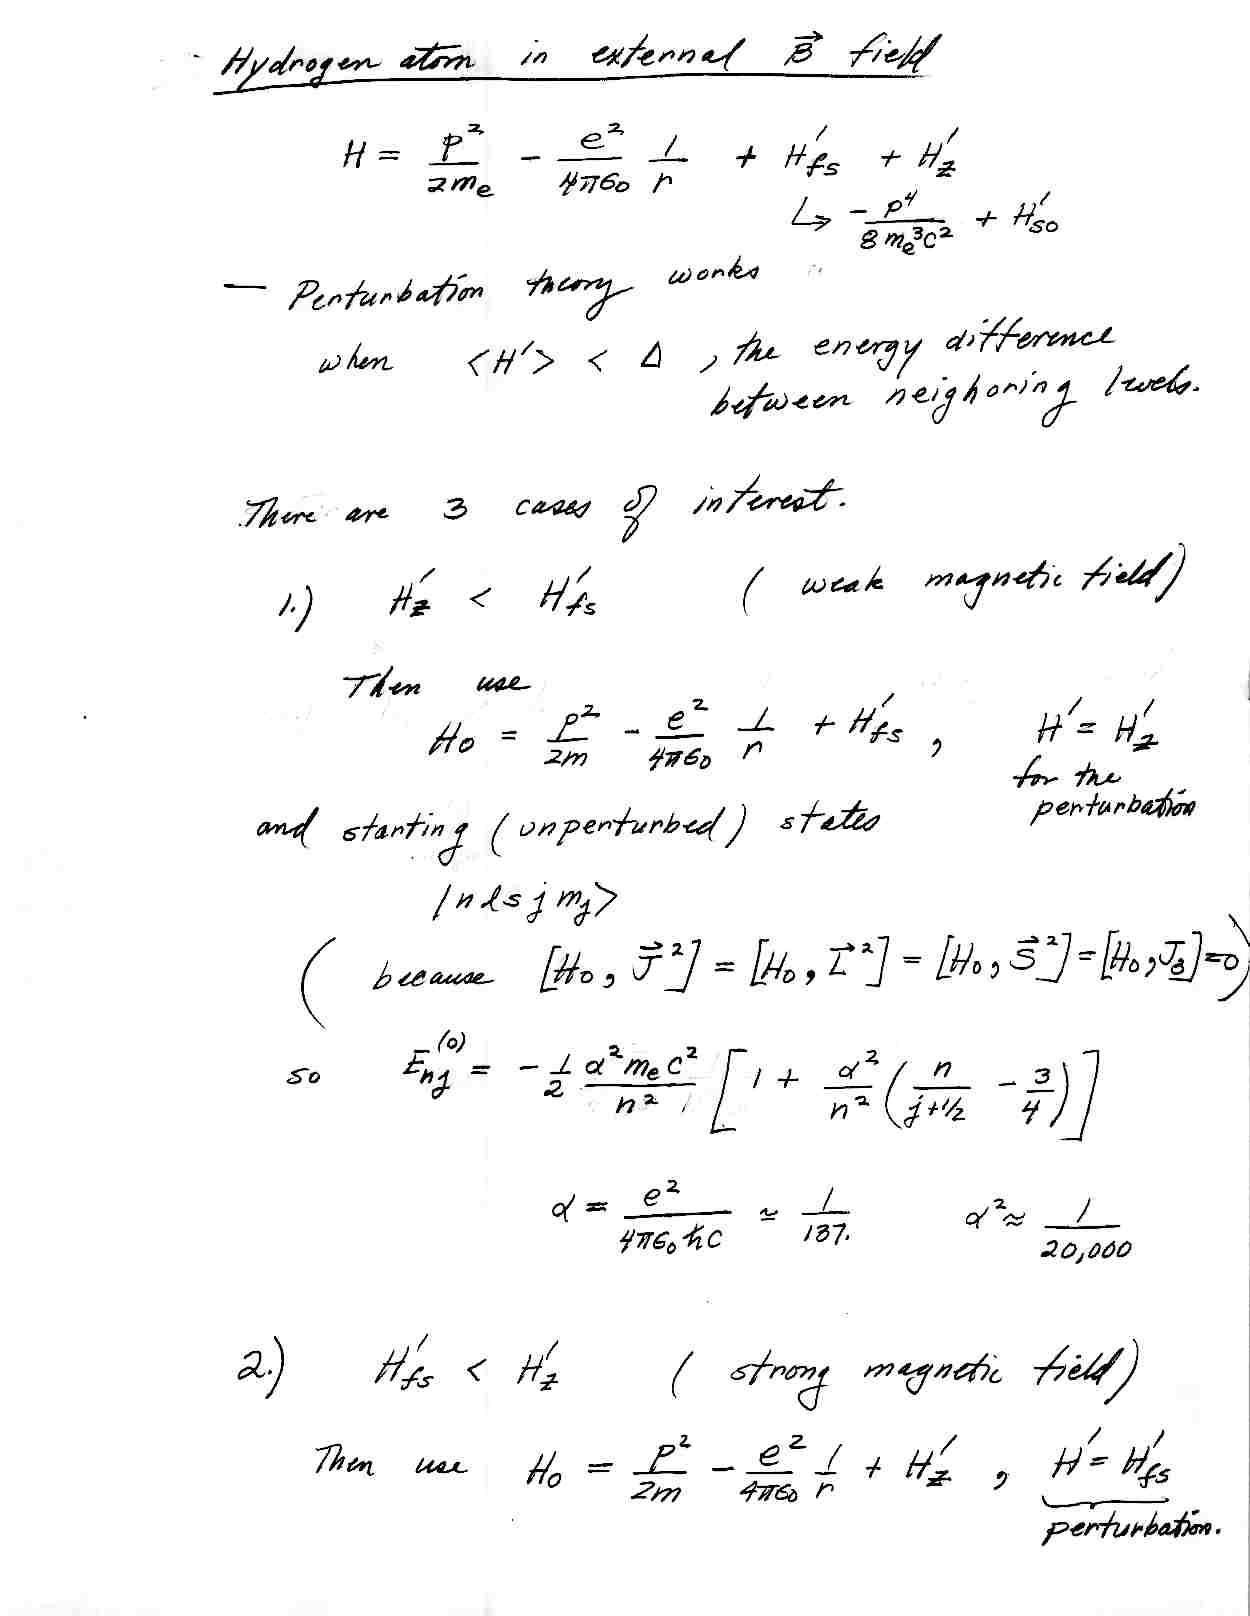 Hydrogen atom in external B⃗ field
H = p²/2mₑ - e²/4πε₀ 1/r + H'fs + H'z
↳ -p⁴/8mₑ³c² + H'so
— Perturbation theory works
when <H'> < Δ , the energy difference
between neighoring levels.
There are 3 cases of interest.
1.) H'z < H'fs ( weak magnetic field)
Then use
H₀ = p²/2m - e²/4πε₀ 1/r + H'fs , H' = H'z
for the
perturbation
and starting (unperturbed) states
|n l s j mj>
( because [H₀, J⃗²] = [H₀, L⃗²] = [H₀, S⃗²] = [H₀, J₃] = 0 )
so Enj⁽⁰⁾ = - 1/2 α²mₑc²/n² [ 1 + α²/n² ( n/j+1/2 - 3/4 ) ]
α = e²/4πε₀ħc ≈ 1/137. α² ≈ 1/20,000
2.) H'fs < H'z ( strong magnetic field)
Then use H₀ = p²/2m - e²/4πε₀ 1/r + H'z , H' = H'fs
perturbation.